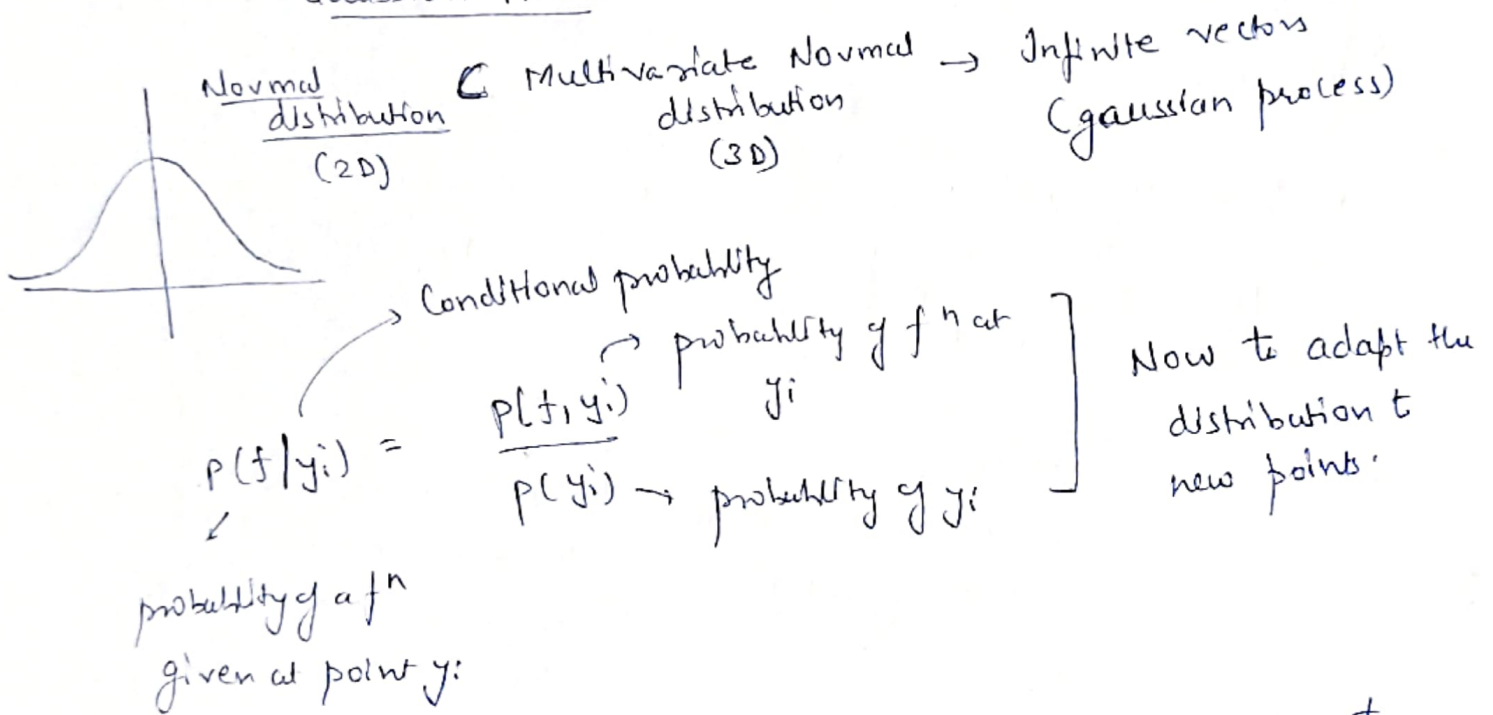 Normal distribution (2D) ⊂ Multivariate Normal distribution (3D) → Infinite vectors (gaussian process)
→ Conditional probability
p(f/yi) = p(f, yi) / p(yi)
→ probability of fn at yi
→ probability of yi
Now to adapt the
distribution t
new points.
probability of a fn
given at point yi